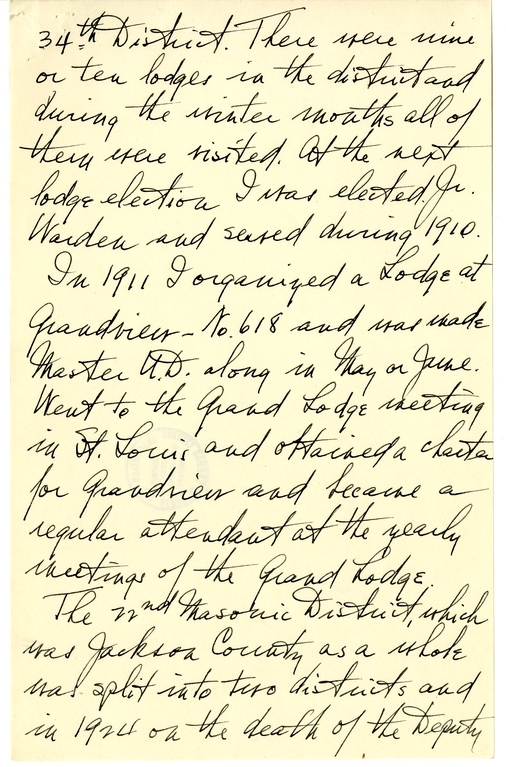 34th District. There were nine
or ten lodges in the district and
during the winter months all of
them were visited. At the next
lodge election I was elected Jr.
Warden and served during 1910.
In 1911 I organized a Lodge at
Grandview - No. 618 and was made
Master U.D. along in May or June.
Went to the Grand Lodge meeting
in St. Louis and obtained a charter
for Grandview and became a
regular attendant at the yearly
meetings of the Grand Lodge.
The 22nd Masonic District, which
was Jackson County as a whole
was split into two districts and
in 1924 on the death of the Deputy